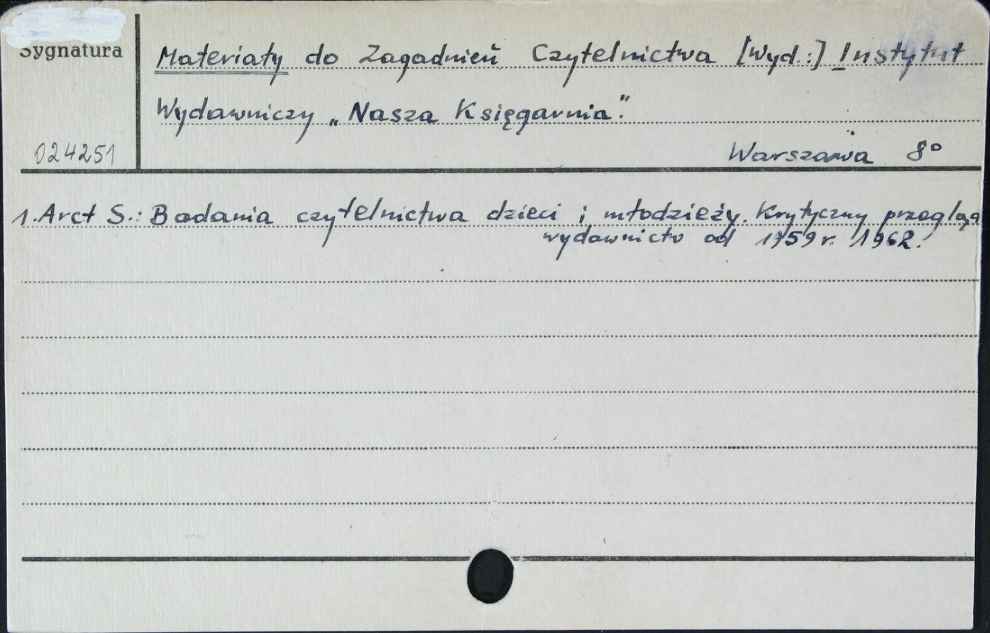 Sygnatura
Materiały do Zagadnień Czytelnictwa [Wyd.:] Instytut
Wydawniczy „Nasza Księgarnia".
024251
Warszawa 8°
1. Arct S.: Badania czytelnictwa dzieci i młodzieży. Krytyczny przegląd
wydawnictw od 1959 r. 1962.